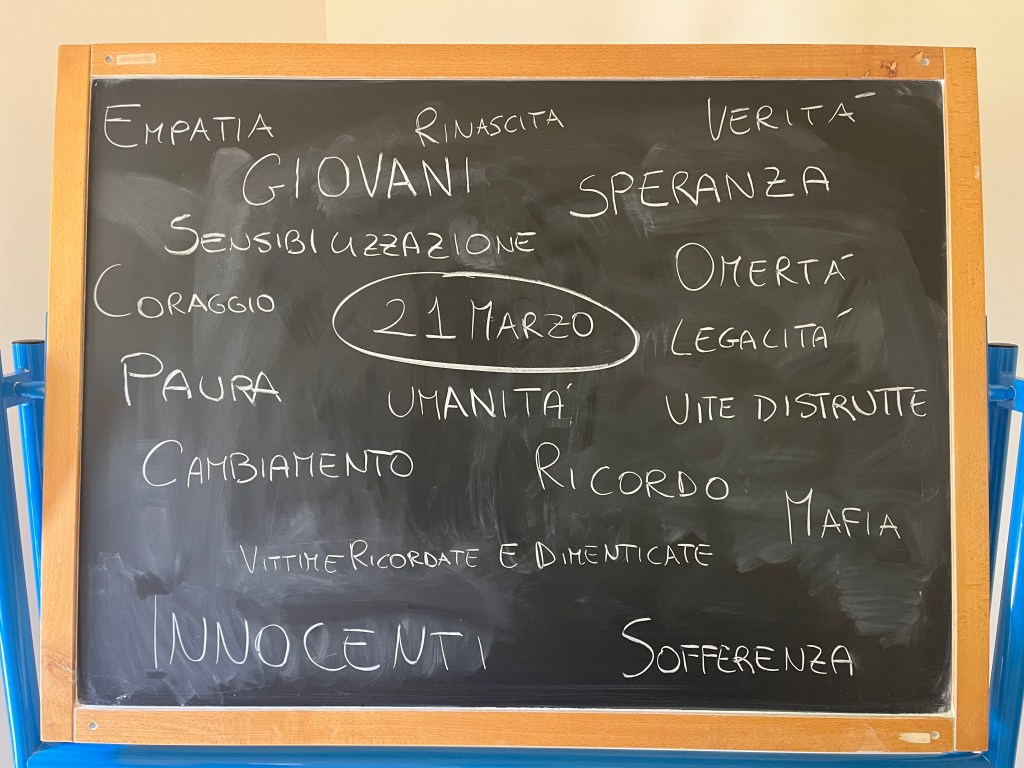 EMPATIA RINASCITA VERITÁ
GIOVANI SPERANZA
SENSIBILIZZAZIONE
OMERTÁ
CORAGGIO 21 MARZO
LEGALITÁ
PAURA UMANITÁ VITE DISTRUTTE
CAMBIAMENTO RICORDO
MAFIA
VITTIME RICORDATE E DIMENTICATE
INNOCENTI SOFFERENZA